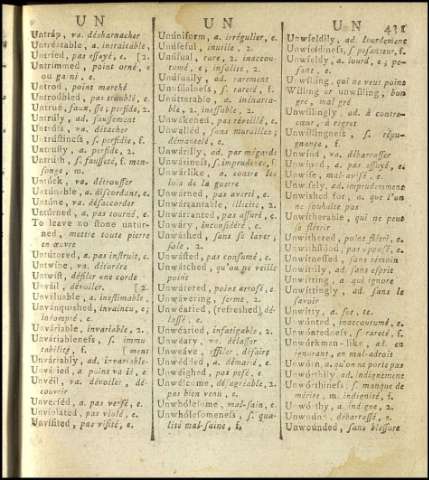 UN
Untráp, va. désharnacher
Untréatable, a. intraitable,
Untried, pas essayé, e. [2.
Untrimmed, point orné, e
ou garni, e.
Untrod, point marché
Untroubled, pas troublé, e.
Untrue, faux, se; perfide, 2.
Untrúly, ad. faussement
Untrúss, va. détacher
Untrústiness, s. perfidie, f.
Untrústy, a. perfide, 2.
Untrúth, s. fausseté, f. men-
songe, m.
Untúck, va. détrousser
Untúnable, a. discordant, e.
Untúne, va. désaccorder
Untúrned, a. pas tourné, e.
To leave no stone untur-
ned, mettre toute pierre
en œuvre
Untútored, a. pas instruit, e.
Untwíne, va. détordre
Untwíst, défiler une corde
Unvaíl, dévoiler [2.
Unváluable, a. inestimable,
Unvánquished, invaincu, e;
indompté, e.
Unváriable, invariable, 2.
Unváriableness, s. immu
tabilité, f [ment
Unváriably, ad. invariable-
Unváried, a. point varié, e
Unveíl, va. dévoiler, dé-
couvrir
Unverséd, a. pas versé, e.
Unvíolated, pas violé, e.
Unvísited, pas visité, e.
UN
Unúniform, a. irrégulier, e.
Unúseful, inutile, 2.
Unúsual, rare, 2. inaccou-
tumé, e, insolite, 2.
Unúsually, ad. rarement
Unúsualness, s. rareté, f.
Unútterable, a. inénarra-
ble, 2. ineffable, 2.
Unwákened, pas réveillé, e.
Unwálled, sans murailles;
démantelé, e.
Unwárily, ad. par mégarde
Unwáriness, s. imprudence, f.
Unwárlike, a. contre les
loix de la guerre
Unwárned, pas averti, e.
Unwárrantable, illicite, 2.
Unwárranted, pas assuré, e.
Unwáry, inconsidéré, e.
Unwáshed, sans se laver;
sale, 2.
Unwásted, pas consumé, e.
Unwátched, qu'on ne veille
point
Unwátered, point arrosé, e.
Unwávering, ferme, 2.
Unweáried, (refreshed) dé-
lassé, e.
Unweáried, infatigable, 2.
Unweáry, va. délasser
Unweáve, effiler, défaire
Unwédded, a. démarié, e.
Unweíghed, pas pesé, e.
Unwélcome, désagréable, 2.
pas bien venu, e.
Unwhólesome, mal-sain, e.
Unwhólesomeness, s. qua-
lité mal-saine, f.
UN 431
Unwíeldily, ad. lourdement
Unwíeldiness, s. pesanteur, f.
Unwíeldy, a. lourd, e; pe-
sant, e.
Unwílling, qui ne veut point
Willing or unwílling, bon
gré, mal gré
Unwíllingly, ad. à contre-
cœur, à regret
Unwíllingness, s. répu-
gnance, f.
Unwínd, va. débarrasser
Unwíped, a. pas essuyé, e.
Unwíse, mal-avisé, e.
Unwísely, ad. imprudemment
Unwíshed for, a. que l'on
ne souhaite pas
Unwítherable, qui ne peut
se flétrir
Unwíthered, point flétri, e.
Unwithstóod, pas opposé, e.
Unwítnessed, sans témoin
Unwíttily, ad. sans esprit
Unwítting, a. qui ignore
Unwíttingly, ad. sans le
savoir
Unwítty, a. sot, te.
Unwónted, inaccoutumé, e.
Unwóntedness, s. rareté, f.
Unwórkman-like, ad. en
ignorant, en mal-adroit
Unwórn, a. qu'on ne porte pas
Unwórthily, ad. indignement
Unwórthiness, s. manque de
mérite, m. indignité, f.
Unwórthy, a. indigne, 2.
Unwóund, débarrassé, e.
Unwóunded, sans blessure